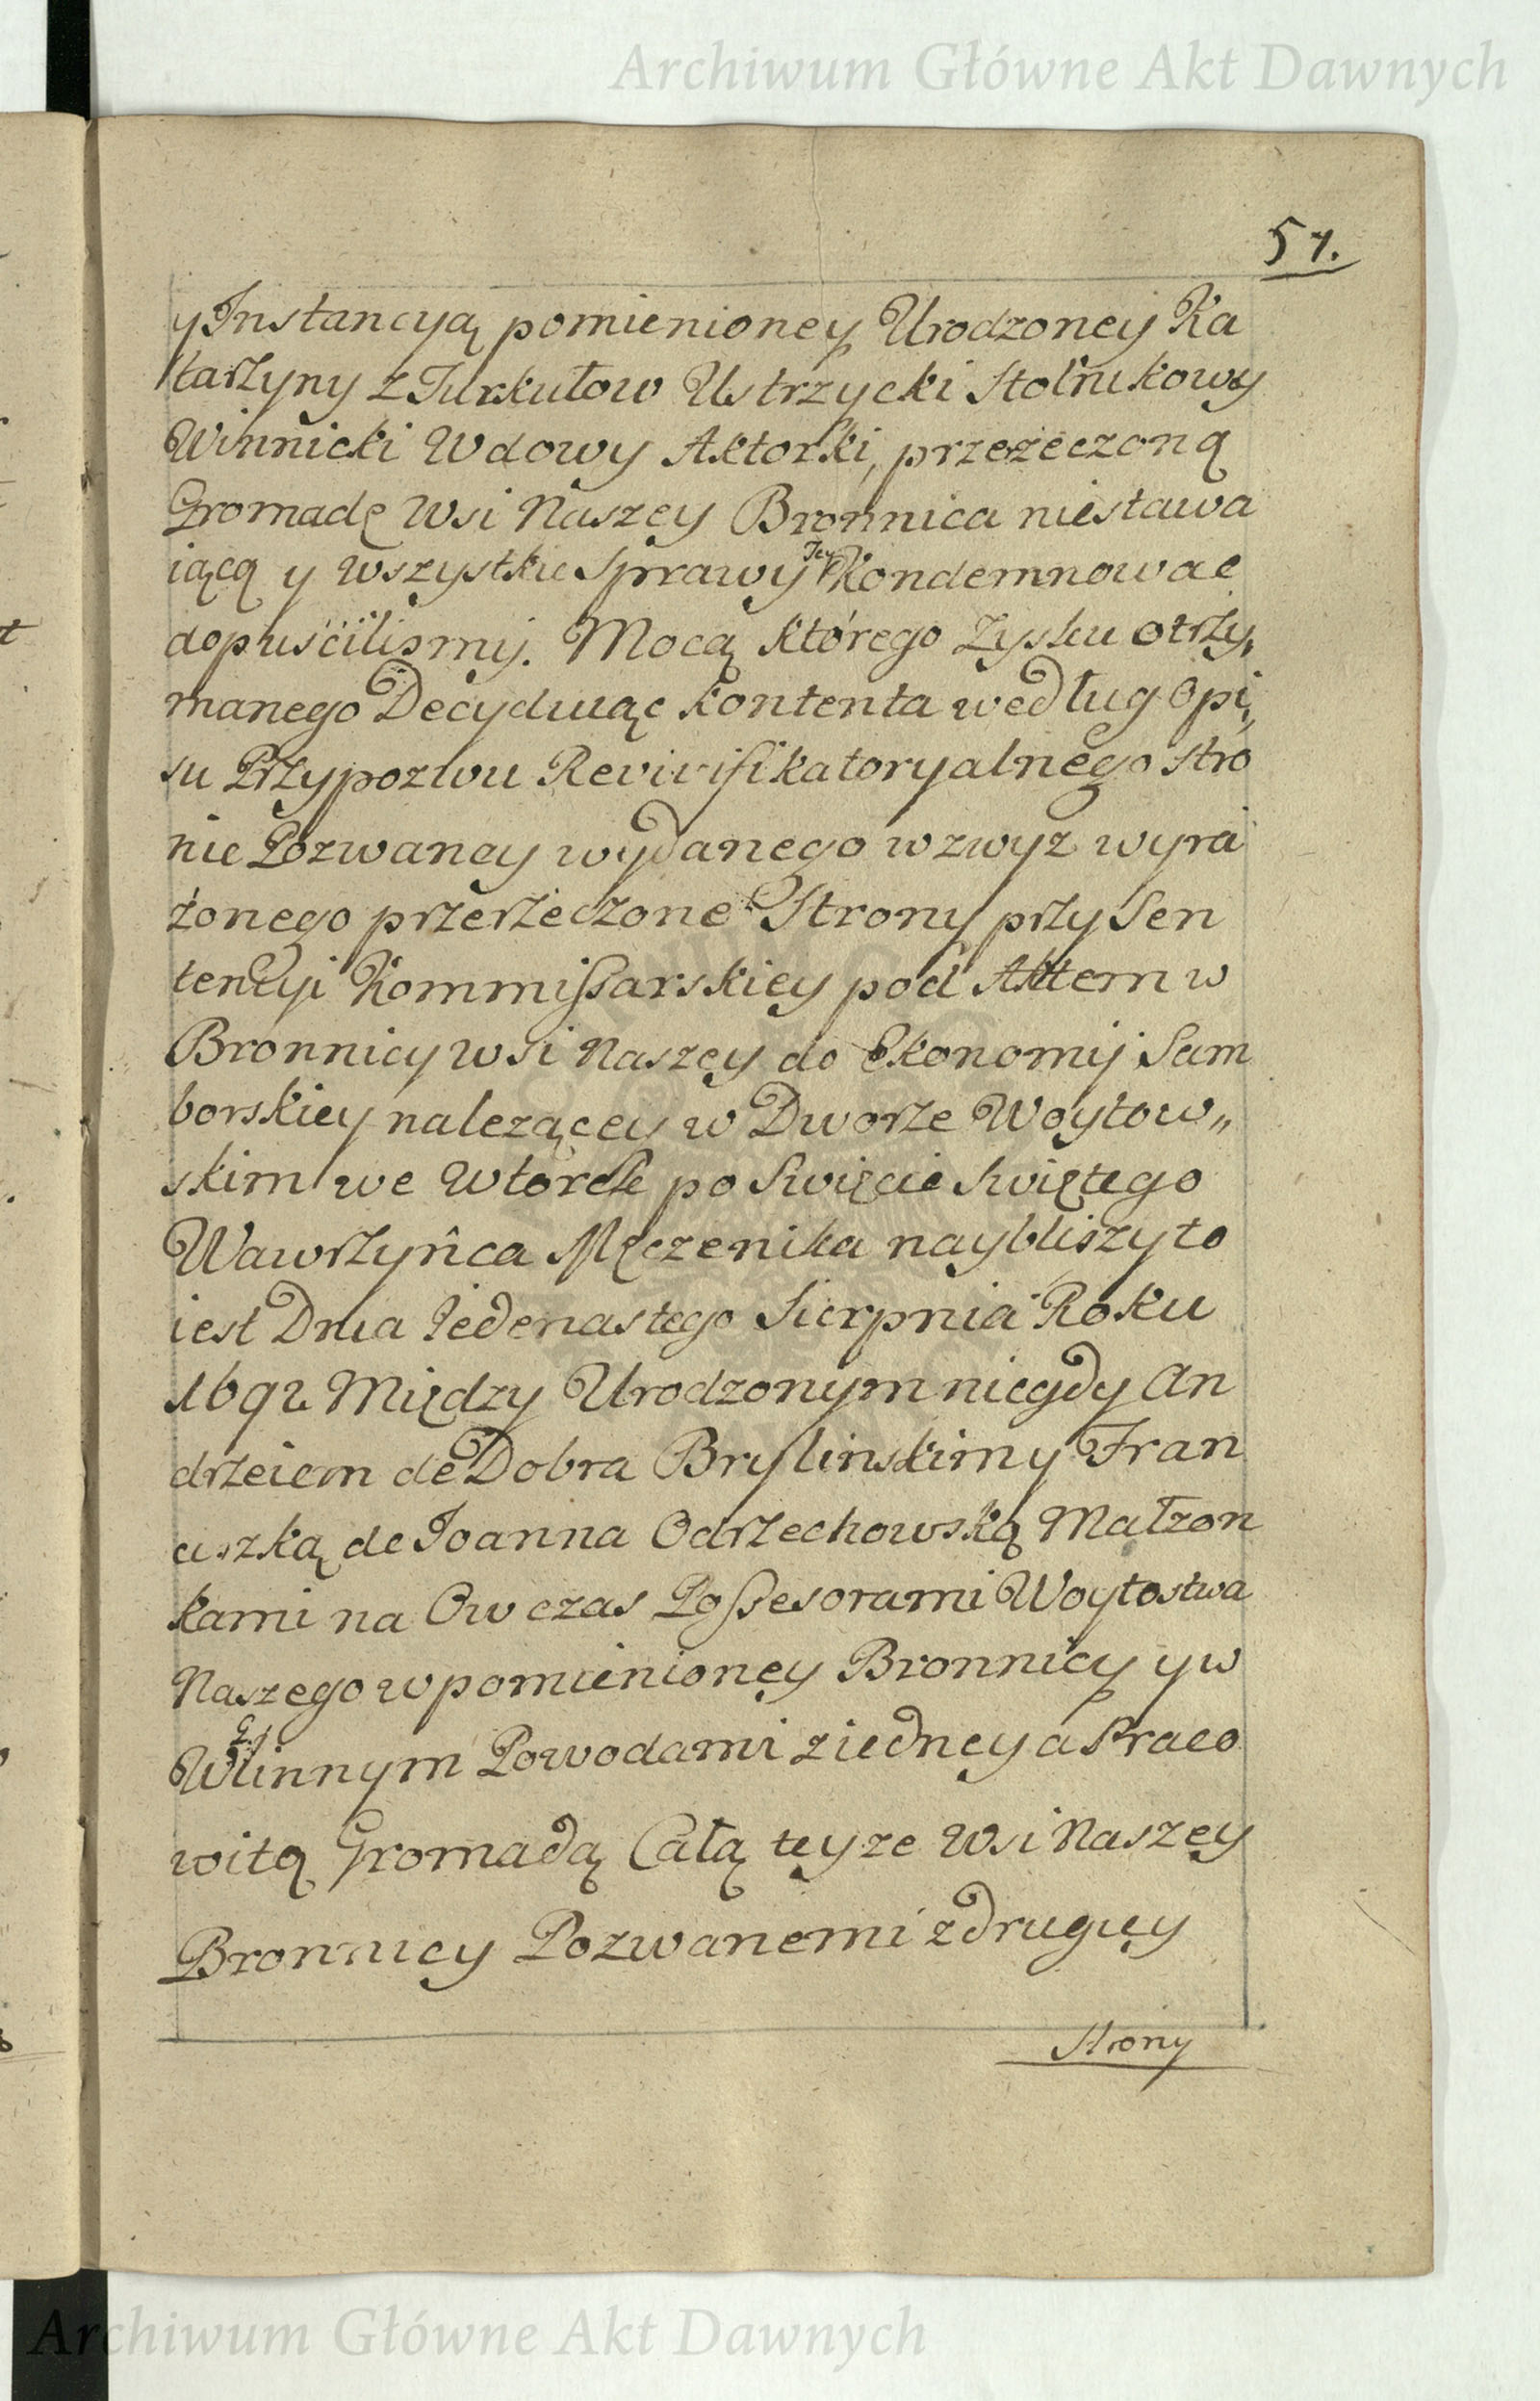 Archiwum Główne Akt Dawnych
57.
y Instancyą pomienioney Urodzoney Ka
tarzyny z Turkułow Ustrzycki Stolnikowy
Winnicki Wdowy Aktorki, przerzeczoną
Gromadę Wsi Naszey Bronnica niestawa
iącą y wszystkie Sprawy Jey Kondemnowac
dopuścilismy. Mocą którego Zysku otrzy,
manego Decyduiąc kontenta według Opi„
su Przypozwu Revivifikatoryalnego stro
nie Pozwaney wydanego wzwyz wyra
żonego przerzeczone Strony przy Sen
tencyi Kommissarskiey pod Aktem w
Bronnicy wsi Naszey do Ekonomij Sam
borskiey nalezącey w Dworze Woytow„
skim we Wtorek po Swięcie Swiętego
Wawrzyńca Męczenika naybliszy to
iest Dnia Jedenastego Sierpnia Roku
1692 Między Urodzonym niegdy An
drzeiem de Dobra Brylinskim y Fran
ciszką de Joanna Odrzechowską Małzon
kami na Ow czas Possesorami Woytostwa
Naszego w pomienioney Bronnicy y w
Winnym Powodami z iedney a Praco
witą Gromadą Całą teyze Wsi Naszey
Bronnicy Pozwanemi z drugiey
Strony
Archiwum Główne Akt Dawnych